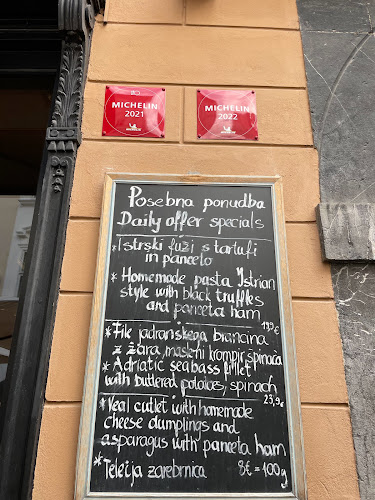 MICHELIN
2021
MICHELIN
2022
Posebna ponudba
Daily offer specials
*Istrski fuži s tartufi
in panceto
* Homemade pasta Istrian
style with black truffles
and panceta ham
* File jadranskega brancina
z žara, masleni krompir, špinača
* Adriatic seabass fillet
with buttered potatoes, spinach
23,9€
*Veal cutlet with homemade
cheese dumplings and
asparagus with panceta ham
*Telečja zarebrnica 8€ = 100g